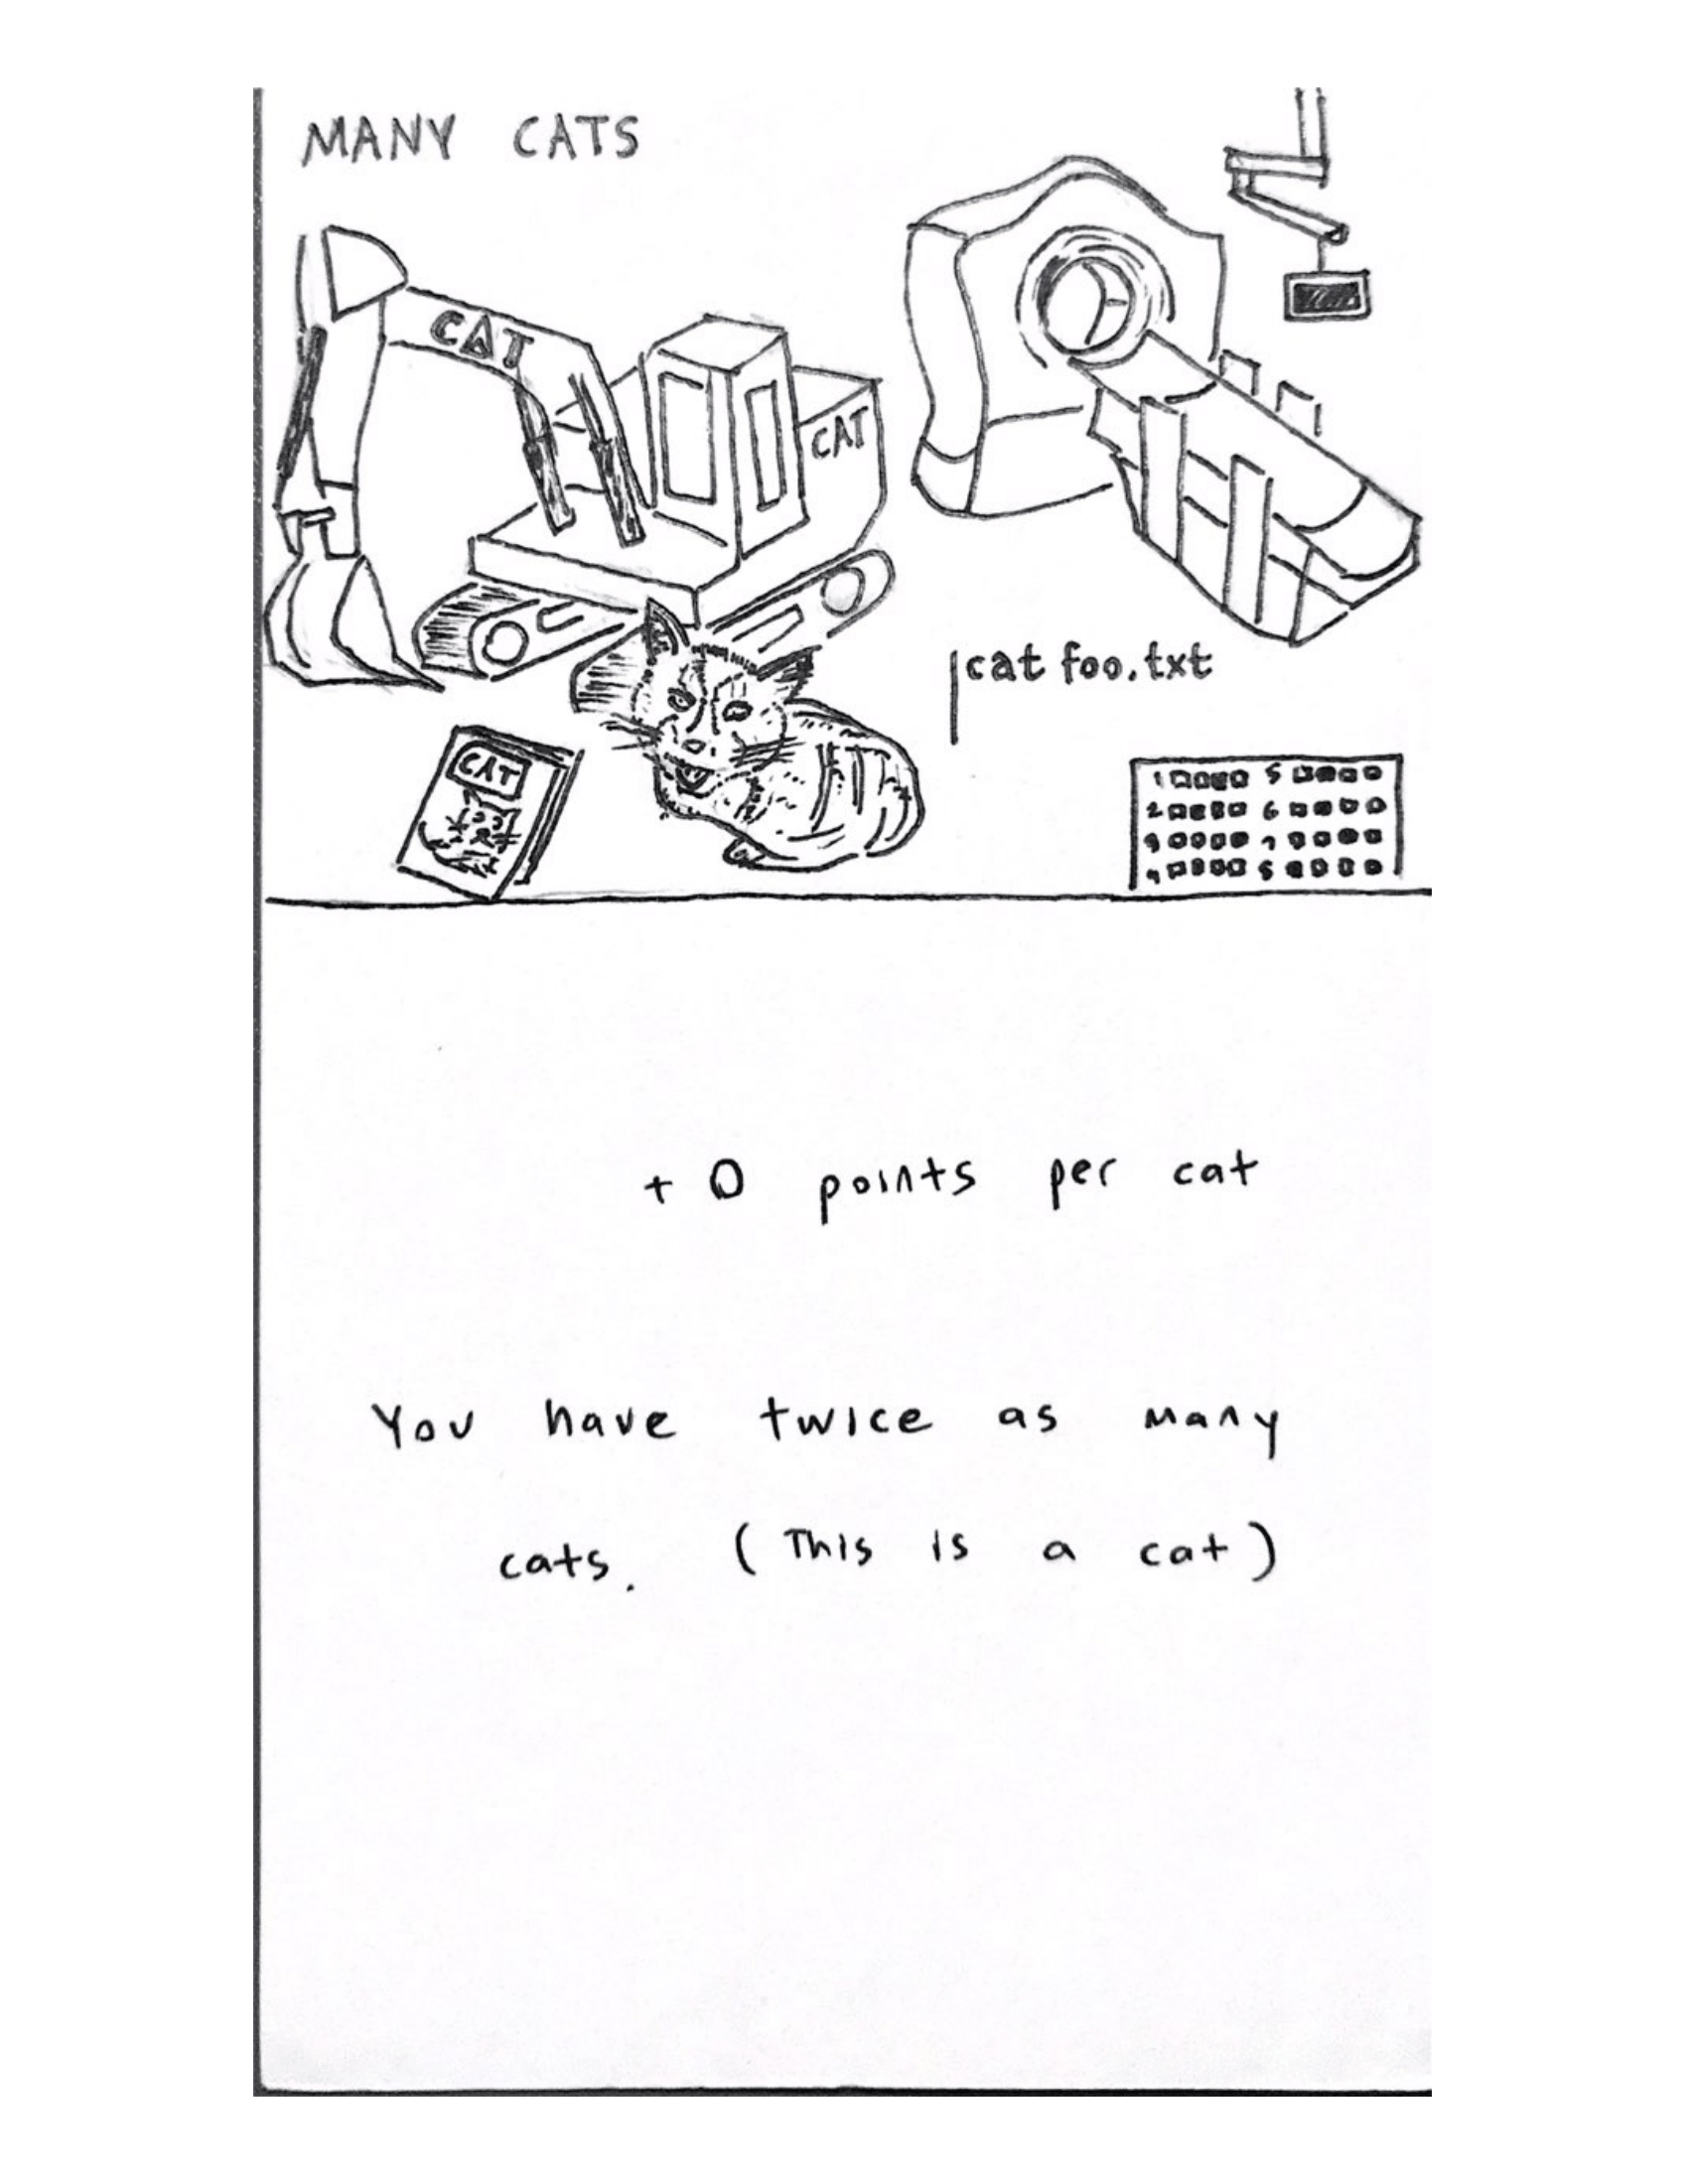 MANY CATS
CAT
CAT
cat foo.txt
CAT
1 5
2 6
+ 0 points per cat
You have twice as many
cats. (This is a cat)